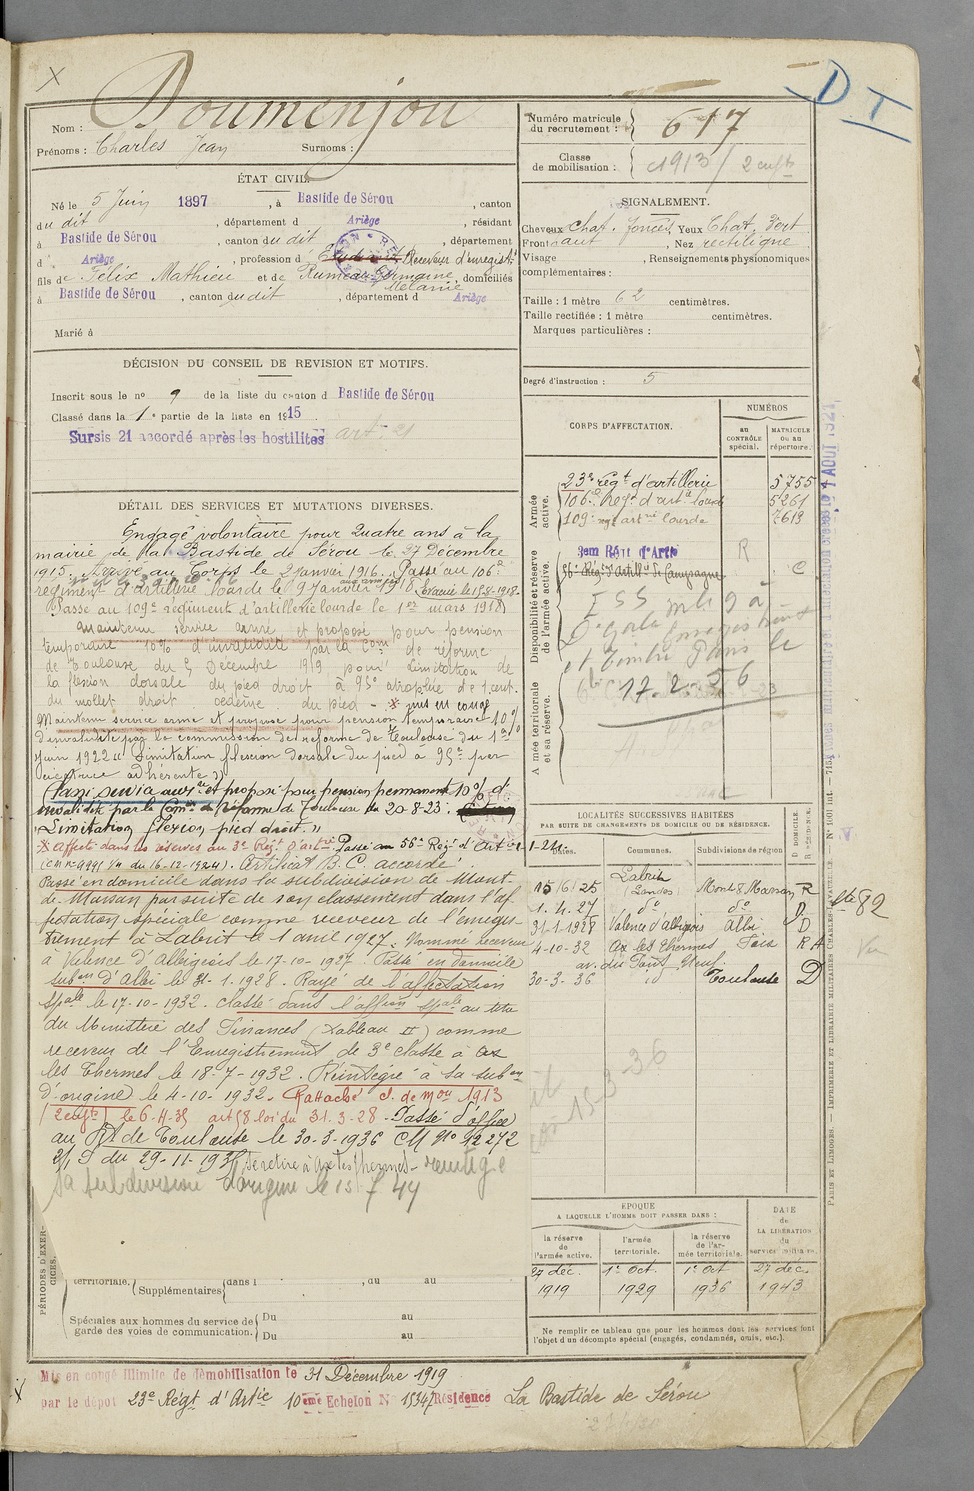 Nom : Doumenjou
Prénoms : Charles Jean Surnoms :
ÉTAT CIVIL.
Né le 5 Juin 1897, à Bastide de Sérou, canton
du dit, département d Ariège, résidant
à Bastide de Sérou, canton du dit, département
d Ariège, profession d Receveur d'enregist.
fils de Félix Mathieu et de Rumeau Germaine Mélanie, domiciliés
à Bastide de Sérou, canton du dit, département d Ariège
Marié à
DÉCISION DU CONSEIL DE REVISION ET MOTIFS.
Inscrit sous le no 9 de la liste du canton d Bastide de Sérou
Classé dans la 1e partie de la liste en 1915
Sursis 21 accordé après les hostilités art. 21
DÉTAIL DES SERVICES ET MUTATIONS DIVERSES.
Engagé volontaire pour Quatre ans à la
mairie de la Bastide de Sérou le 27 Décembre
1915. Arrivé au Corps le 2 Janvier 1916. Passé au 106e
régiment d'artillerie lourde le 9 Janvier 19 Evacué le 15-8-1918.
Passe au 109e régiment d'artillerie lourde le 1er mars 1918
Maintenu service armé et proposé pour pension
temporaire 10% d'invalidité par la Com de réforme
de Toulouse du 5 Décembre 1919 pour limitation de
la flexion dorsale du pied droit à 95° atrophie de 1 cent.
du mollet droit œdème du pied - mis en congé
Maintenu service armé et proposé pour pension temporaire 10%
d'invalidité par la commission de réforme de Toulouse du 1er
juin 1922 "Limitation flexion dorsale du pied à 95° par
cicatrice adhérente"
et proposé pour pension permanente 10% d'
invalidité par la Comon de réforme de Toulouse du 20-8-23.
"Limitation flexion pied droit."
Affecté dans les réserves au 3e Régt d'artie Passé au 56e Régt d'artie 1-24.
(CM no 9991 du 16-12-1924). Certificat B.C. accordé
Passé en domicile dans la subdivision de Mont-
de-Marsan par suite de son classement dans l'af-
fectation spéciale comme receveur de l'enregis-
trement à Labrit le 1 avril 1927. Nommé receveur
à Valence d'Albigeois le 17-10-1927. Passé en domicile
subon d'Albi le 31-1-1928. Rayé de l'affectation
spale le 17-10-1932. Classé dans l'affon spale au titre
du Ministère des Finances (Tableau II) comme
receveur de l'Enregistrement de 3e classe à Ax
les Thermes le 18-7-1932. Réintégré à sa subon
d'origine le 4-10-1932. Rattaché cl. de mon 1913
(2 enfts) le 6-11-35 art 58 loi du 31.3.28. Passé d'office
au de Toulouse le 30-3-1936 CM No 12272
du 29-11-1935 Se retire à Ax les Thermes - réintégré
sa subdivision d'origine le 15 44
PÉRIODES D'EXERCICES.
territoriale. Supplémentaires dans l , du au
Spéciales aux hommes du service de garde des voies de communication. Du au
Du au
Mis en congé illimité de démobilisation le 31 Décembre 1919
par le dépôt 23e Régt d'Artie 10ème Echelon N 15347 Résidence La Bastide de Sérou
D I
Numéro matricule du recrutement : 617
Classe de mobilisation : cl 1913 / 2 enfts
SIGNALEMENT.
Cheveux chat. foncés, Yeux Chat. Vert
Front haut, Nez rectiligne
Visage , Renseignements physionomiques
complémentaires :
Taille : 1 mètre 62 centimètres.
Taille rectifiée : 1 mètre centimètres.
Marques particulières :
Degré d'instruction : 5
CORPS D'AFFECTATION.
NUMÉROS
au CONTRÔLE spécial.
MATRICULE ou au répertoire.
Armée active.
23e régt d'artillerie 5755
106e Régt d'artie lourde 5261
109e régt artie lourde 7619
Disponibilité et réserve de l'armée active.
3em Régt d'Artie R
56e Régt d'Artill. de Campagne C
Enregistrement
et Timbre Paris le
17.2.56
Armée territoriale et sa réserve.
LOCALITÉS SUCCESSIVES HABITÉES
PAR SUITE DE CHANGEMENTS DE DOMICILE OU DE RÉSIDENCE.
Dates. Communes. Subdivisions de région D DOMICILE. R RÉSIDENCE.
15/6/25 Labrit (Landes) Mont de Marsan R
1.4.27 do do D
31-1-1928 Valence d'Albigeois Albi D
4-10-32 Ax les Thermes Foix R
av. du Pont Neuf
30-3-36 id Toulouse D
ÉPOQUE
A LAQUELLE L'HOMME DOIT PASSER DANS :
la réserve de l'armée active.
l'armée territoriale.
la réserve de l'armée territoriale.
DATE de LA LIBÉRATION du service militaire.
27 déc. 1er Oct. 1er Oct 27 déc.
1919 1929 1936 1943
Ne remplir ce tableau que pour les hommes dont les services font
l'objet d'un décompte spécial (engagés, condamnés, omis, etc.).
PARIS ET LIMOGES. — IMPRIMERIE ET LIBRAIRIE MILITAIRES CHARLES-LAVAUZELLE.